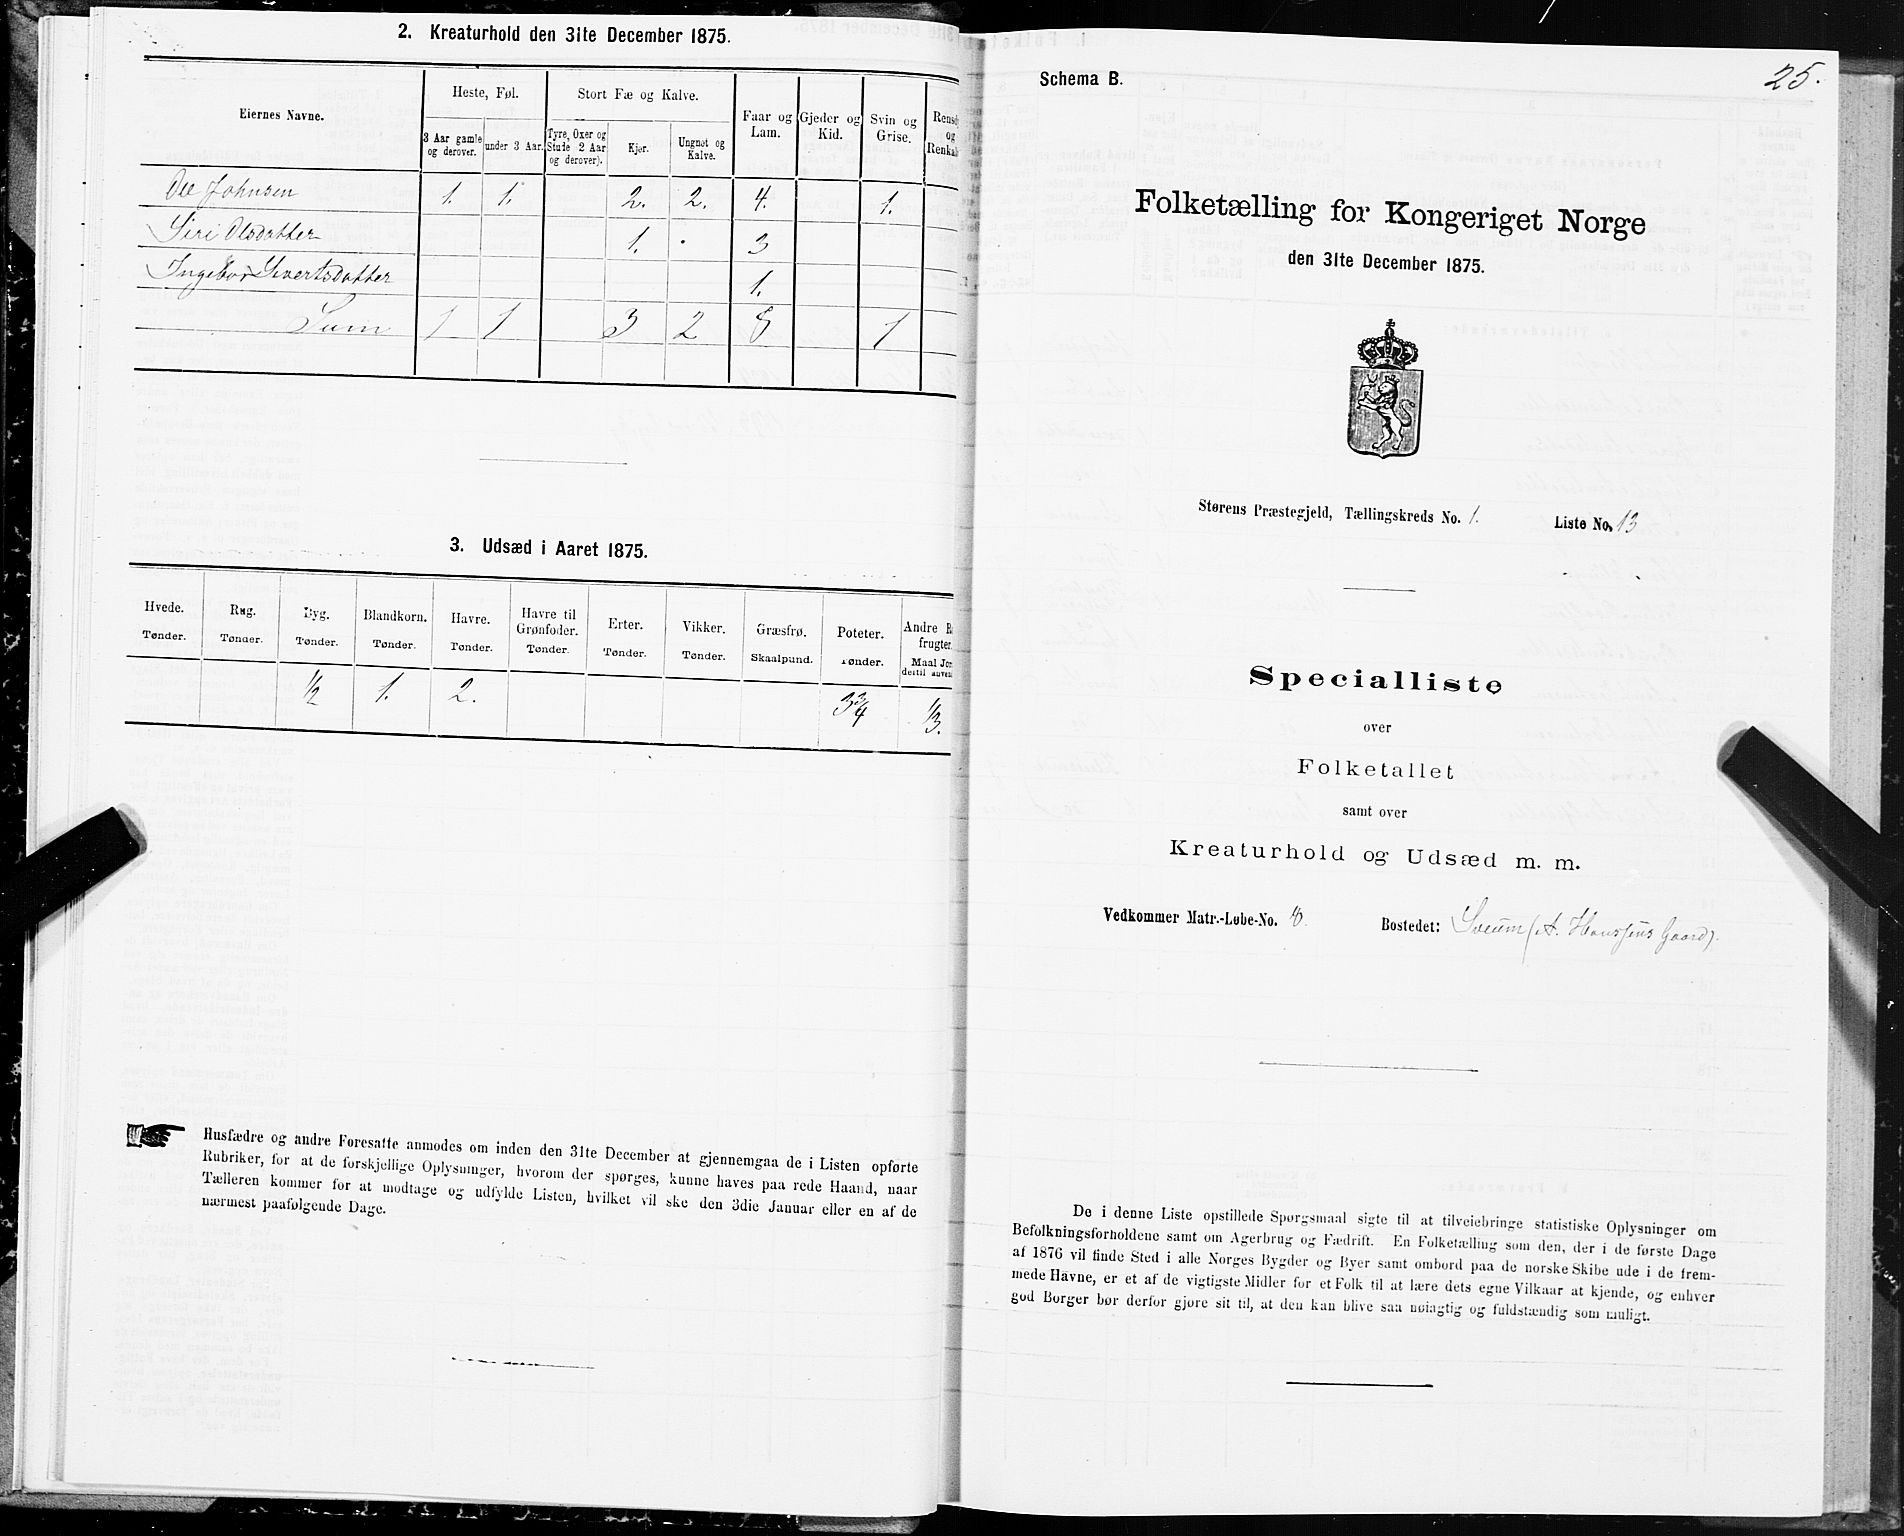 2. Kreaturhold den 31te December 1875.
Eiernes Navne.
Heste, Føl.
Stort Fæ og Kalve.
Faar og Lam.
Gjeder og Kid.
Svin og Grise.
og
3 Aar gamle og derover.
under 3 Aar.
Tyre, Oxer og Stude 2 Aar og derover).
Kjer.
Ungnøt og Kalve.
Ole Johnsen 1. 1. 2. 2. 4. 1.
Siri Olsdatter 1. 3
Ingebor Sivertsdatter 1.
Sum 1 1 3 2 8 1
3. Udsæd i Aaret 1875.
Hvede. Rug. Byg. Blandkorn. Havre. Havre til Grønfoder. Erter. Vikker. Græsfrø. Poteter. Andre
frugter
Tønder. Tønder. Tønder. Tønder. Tønder. Tønder. Tønder. Tønder. Skaalpund. Tønder. Maal
1/2 1. 2. 3 3/4 1/3.
Husfædre og andre Foresatte anmodes om inden den 31te December at gjennemgaa de i Listen opførte
Rubriker, for at de forskjellige Oplysninger, hvorom der spørges, kunne haves paa rede Haand, naar
Tælleren kommer for at modtage og udfylde Listen, hvilket vil ske den 3die Januar eller en af de
nærmest paafølgende Dage.
Schema B.
25.
Folketælling for Kongeriget Norge
den 31te December 1875.
Størens Præstegjeld, Tællingskreds No. 1. Liste No. 13
Specialliste
over
Folketallet
samt over
Kreaturhold og Udsæd m. m.
Vedkommer Matr.-Løbe-No. 8. Bostedet: Sveum (A. Hanssens Gaard).
De i denne Liste opstillede Spørgsmaal sigte til at tilveiebringe statistiske Oplysninger om
Befolkningsforholdene samt om Agerbrug og Fædrift. En Folketælling som den, der i de første Dage
af 1876 vil finde Sted i alle Norges Bygder og Byer samt ombord paa de norske Skibe ude i de frem-
mede Havne, er et af de vigtigste Midler for et Folk til at lære dets egne Vilkaar at kjende, og enhver
god Borger bør derfor gjøre sit til, at den kan blive saa nøiagtig og fuldstændig som muligt.